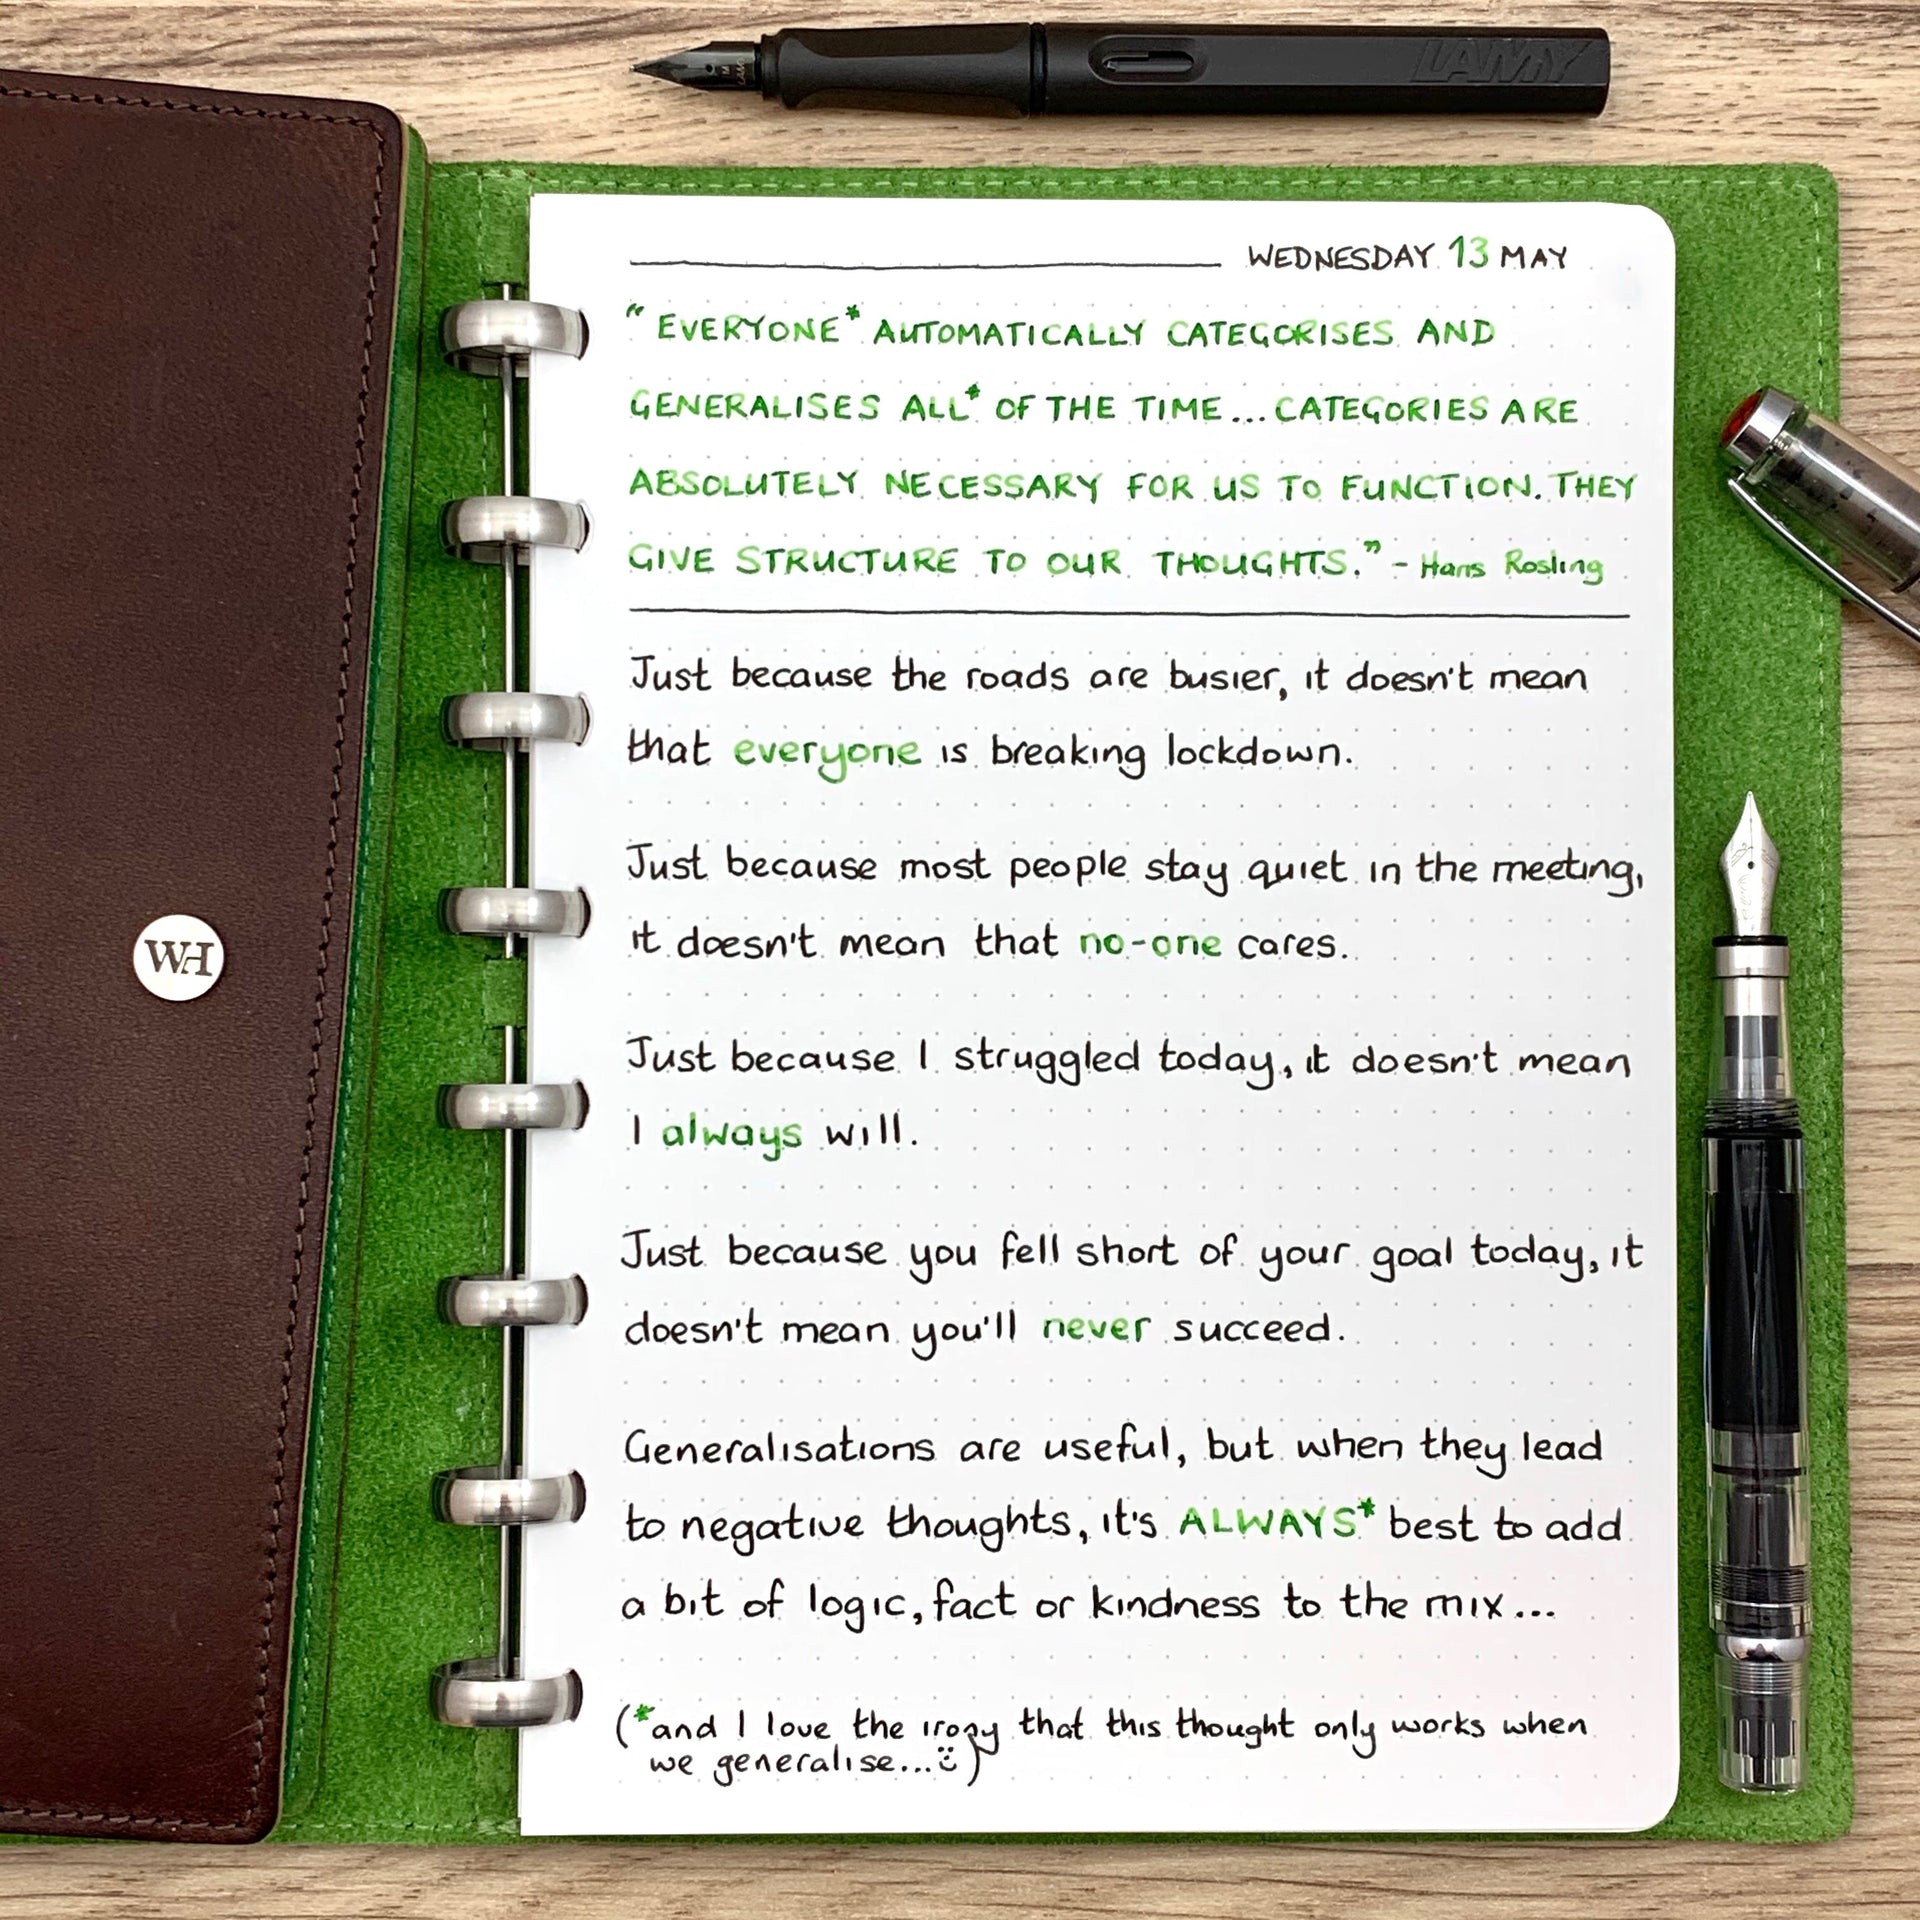 LAMY
WEDNESDAY 13 MAY
“EVERYONE* AUTOMATICALLY CATEGORISES AND
GENERALISES ALL* OF THE TIME... CATEGORIES ARE
ABSOLUTELY NECESSARY FOR US TO FUNCTION. THEY
GIVE STRUCTURE TO OUR THOUGHTS.” - Hans Rosling
Just because the roads are busier, it doesn't mean
that everyone is breaking lockdown.
Just because most people stay quiet in the meeting,
it doesn't mean that no-one cares.
WH
Just because I struggled today, it doesn't mean
I always will.
Just because you fell short of your goal today, it
doesn't mean you'll never succeed.
Generalisations are useful, but when they lead
to negative thoughts, it's ALWAYS* best to add
a bit of logic, fact or kindness to the mix...
(*and I love the irony that this thought only works when
we generalise...☺)